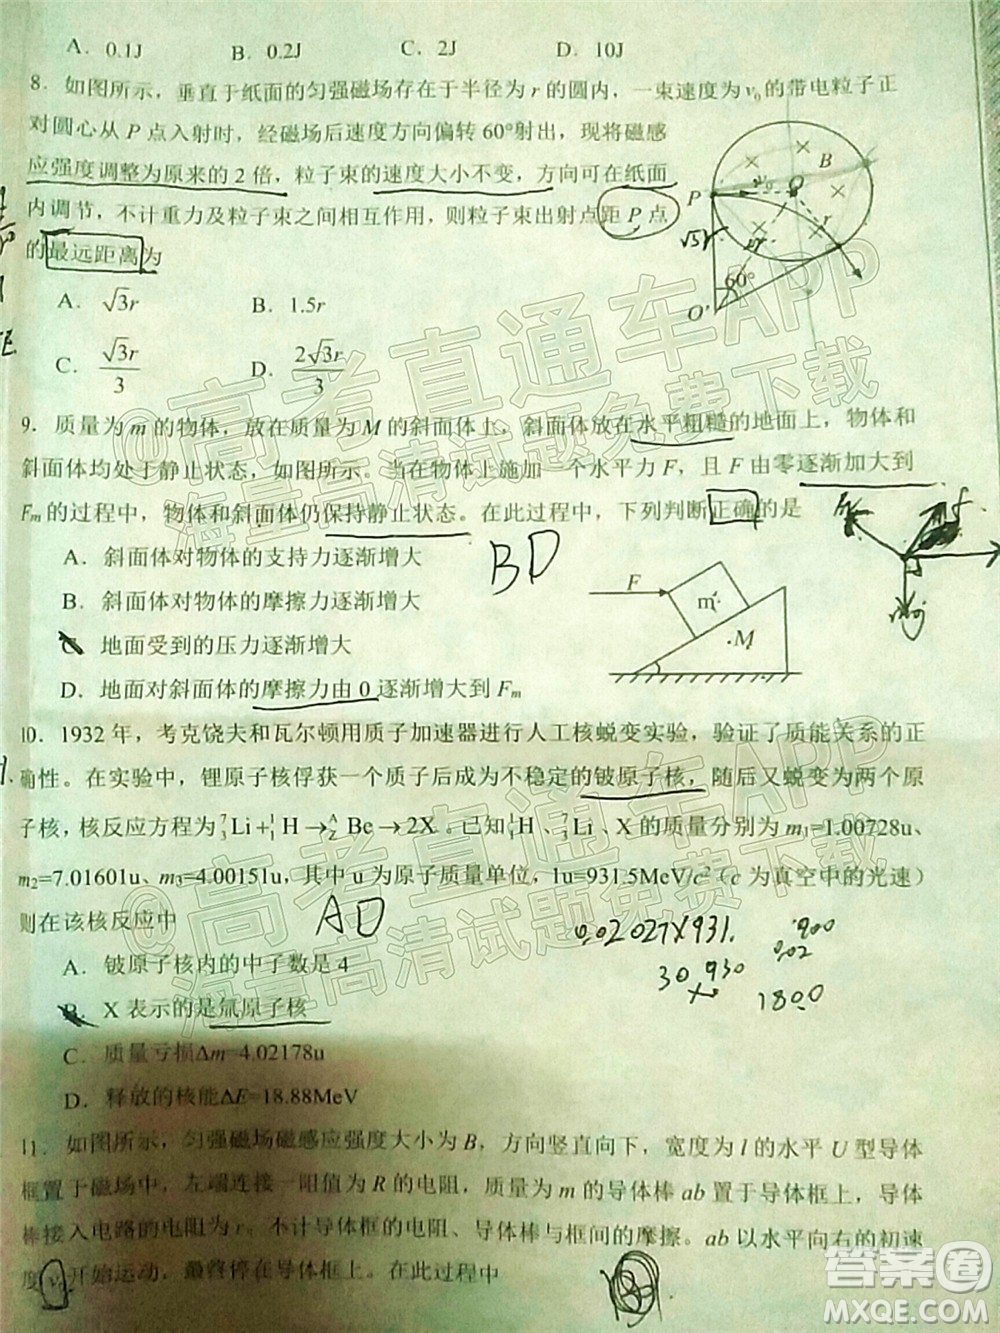 A. 0.1J B. 0.2J C. 2J D. 10J
8. 如图所示，垂直于纸面的匀强磁场存在于半径为 r 的圆内，一束速度为 v₀ 的带电粒子正
对圆心从 P 点入射时，经磁场后速度方向偏转 60°射出，现将磁感
应强度调整为原来的 2 倍，粒子束的速度大小不变，方向可在纸面
内调节，不计重力及粒子束之间相互作用，则粒子束出射点距 P 点
的最远距离为
P v₀ O B r
√3r 60° O'
A. √3r B. 1.5r
C. √3r/3 D. 2√3r/3
9. 质量为 m 的物体，放在质量为 M 的斜面体上，斜面体放在水平粗糙的地面上，物体和
斜面体均处于静止状态，如图所示。当在物体上施加一个水平力 F，且 F 由零逐渐加大到
Fm 的过程中，物体和斜面体仍保持静止状态。在此过程中，下列判断正确的是
A. 斜面体对物体的支持力逐渐增大
BD
B. 斜面体对物体的摩擦力逐渐增大
F m M
C 地面受到的压力逐渐增大
D. 地面对斜面体的摩擦力由 0 逐渐增大到 Fm
10. 1932 年，考克饶夫和瓦尔顿用质子加速器进行人工核蜕变实验，验证了质能关系的正
确性。在实验中，锂原子核俘获一个质子后成为不稳定的铍原子核，随后又蜕变为两个原
子核，核反应方程为 ⁷₃Li+¹₁H→ᴬ_ZBe→2X。已知 ¹₁H、⁷₃Li、X 的质量分别为 m₁=1.00728u、
m₂=7.01601u、m₃=4.00151u，其中 u 为原子质量单位，1u=931.5MeV/c²（c 为真空中的光速）
则在该核反应中
AD
0.02027×931.
30 930
1800
A. 铍原子核内的中子数是 4
B. X 表示的是氚原子核
C. 质量亏损Δm=4.02178u
D. 释放的核能ΔE=18.88MeV
11. 如图所示，匀强磁场磁感应强度大小为 B，方向竖直向下，宽度为 l 的水平 U 型导体
框置于磁场中，左端连接一阻值为 R 的电阻，质量为 m 的导体棒 ab 置于导体框上，导体
棒接入电路的电阻为 r。不计导体框的电阻、导体棒与框间的摩擦。ab 以水平向右的初速
度 v₀ 开始运动，最终停在导体框上。在此过程中
@高考直通车APP
海量高清试题免费下载
@高考直通车APP
海量高清试题免费下载
答案圈
MXQE.COM